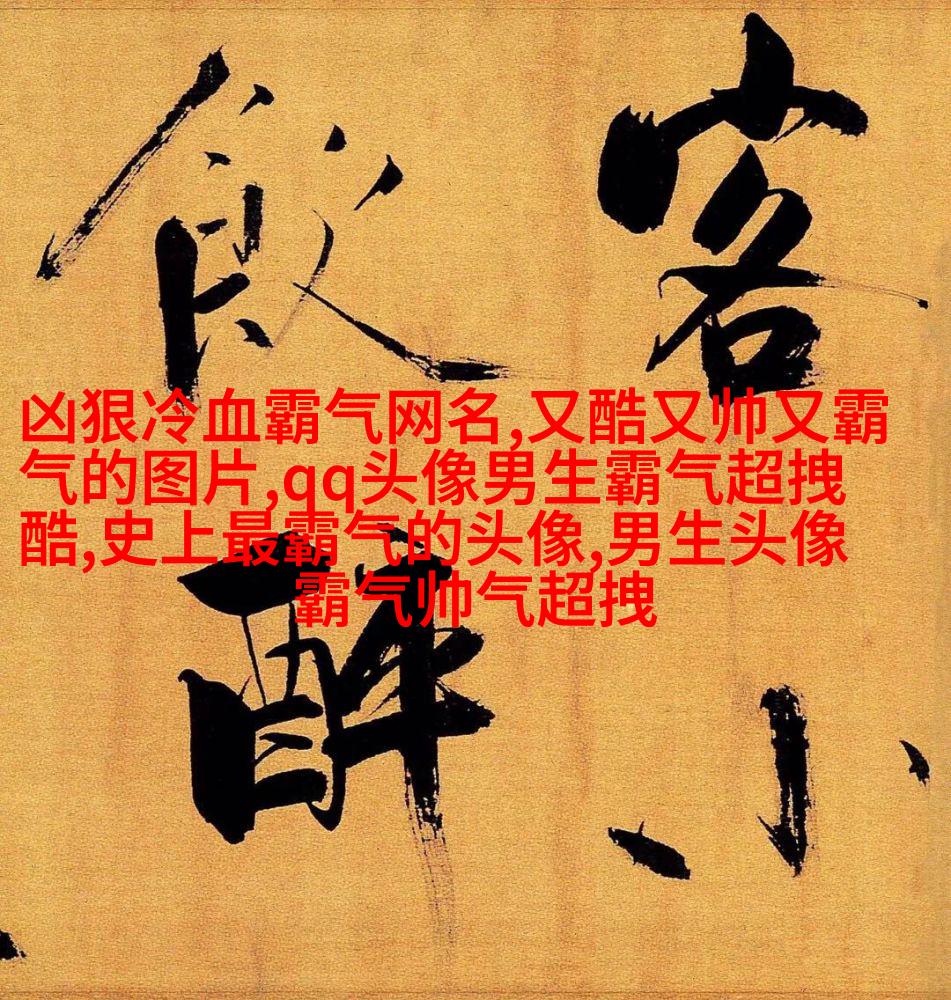 客小
飲醉
凶狠冷血霸气网名,又酷又帅又霸
气的图片,qq头像男生霸气超拽
酷,史上最霸气的头像,男生头像
霸气帅气超拽